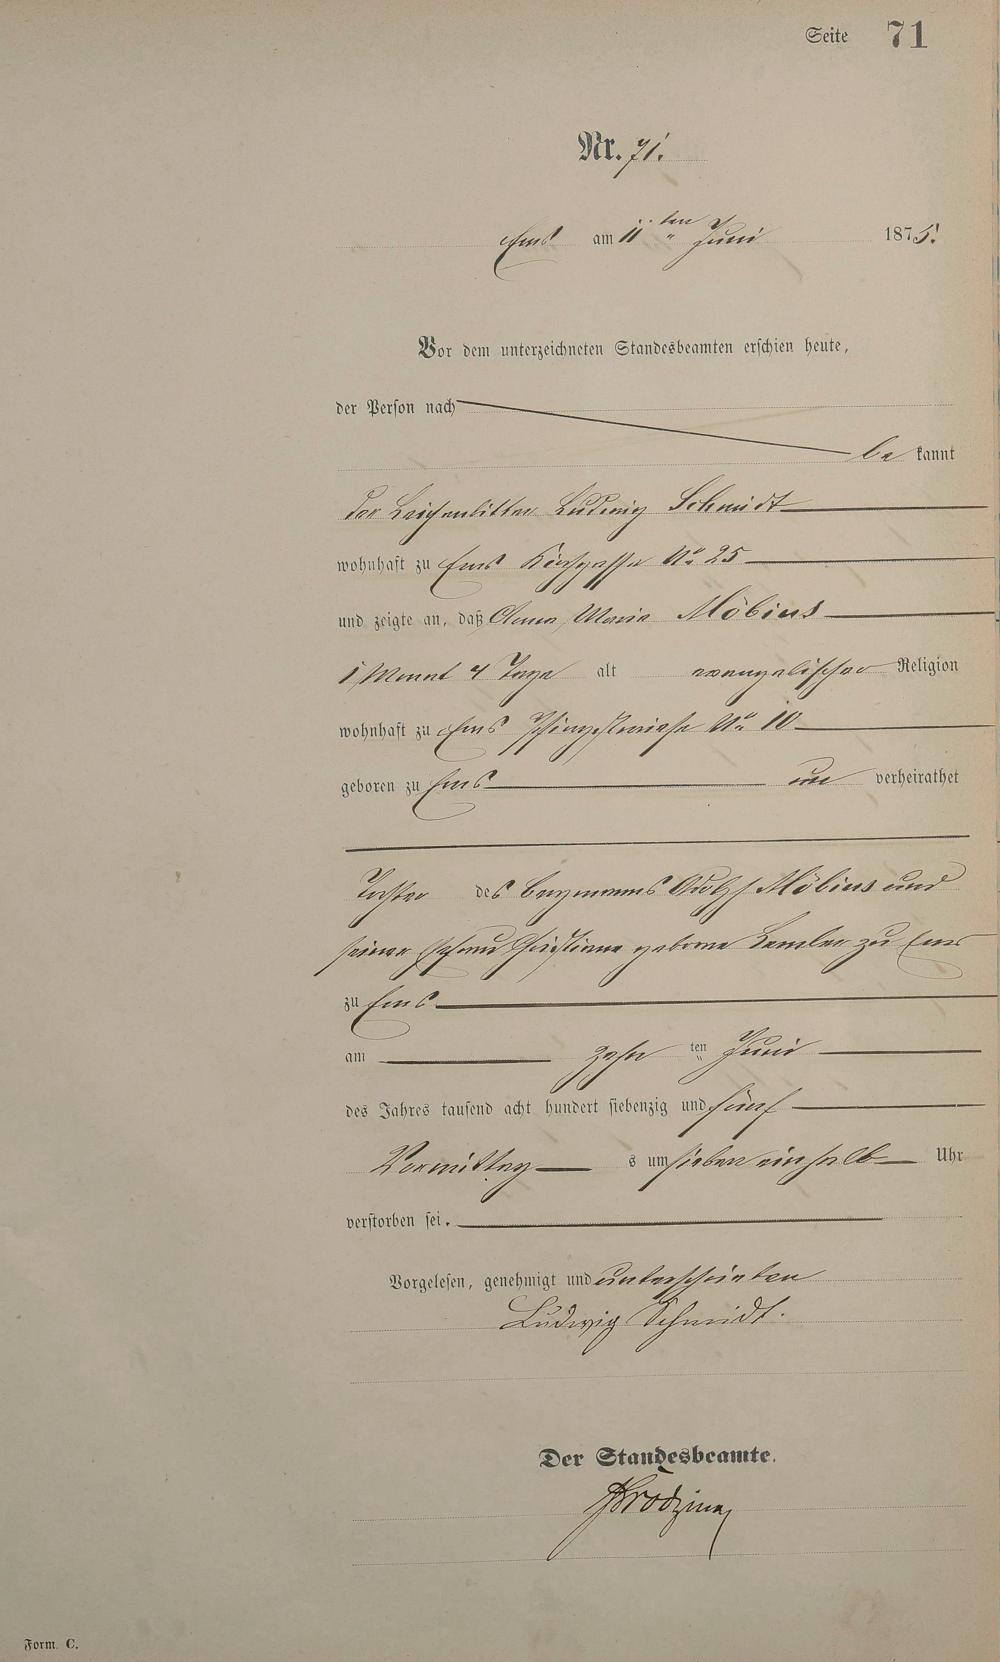 Seite 71
Nr. 71.
Ems am 11ten Juni 1875.
Vor dem unterzeichneten Standesbeamten erschien heute,
der Person nach
be kannt
der Leichenbitter Ludwig Schmidt
wohnhaft zu Ems Kirchgasse No 25
und zeigte an, daß Anna Maria Möbius
1 Monat 4 Tage alt evangelischer Religion
wohnhaft zu Ems Pfingstwiese No 10
geboren zu Ems un verheirathet
Tochter des Bergmanns Adolph Möbius und
seiner Ehefrau Christiane geborne zu Ems
zu Ems
am zehn ten Juni
des Jahres tausend acht hundert siebenzig und fünf
Vormittag s um sieben einhalb Uhr
verstorben sei.
Vorgelesen, genehmigt und unterschrieben
Ludwig Schmidt.
Der Standesbeamte.
Form. C.